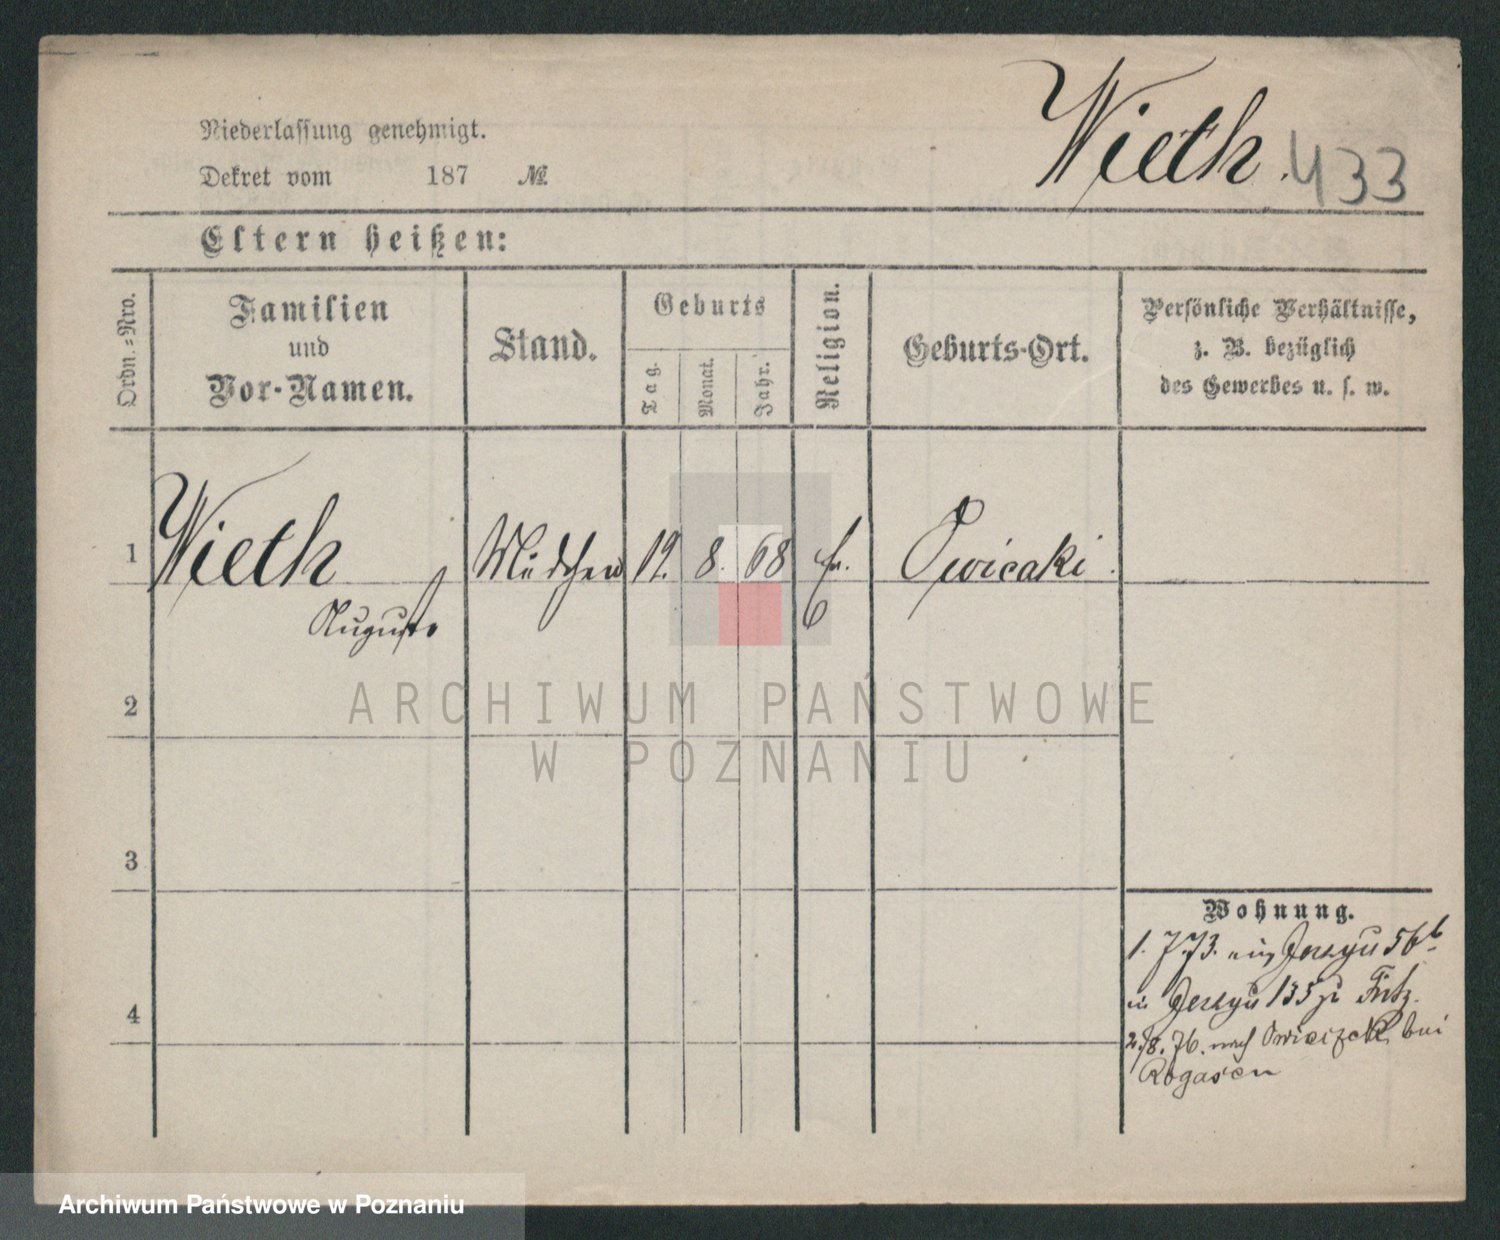 Wieth. 433
Niederlassung genehmigt.
Dekret vom 187 №
Eltern heißen:
Ordn.-Nro.
Familien
und
Vor-Namen.
Stand.
Geburts
Tag.
Monat.
Jahr.
Religion.
Geburts-Ort.
Persönliche Verhältnisse,
z. B. bezüglich
des Gewerbes u. s. w.
1 Wieth Mädchen 8. 68 Owicaki.
Auguste
2
ARCHIWUM PAŃSTWOWE
W POZNANIU
3
Wohnung.
1. 7.73. Jerzyu 56b
in Jerzyu 135 zu
4
2/8. 76. nach bei
Rogasen
Archiwum Państwowe w Poznaniu